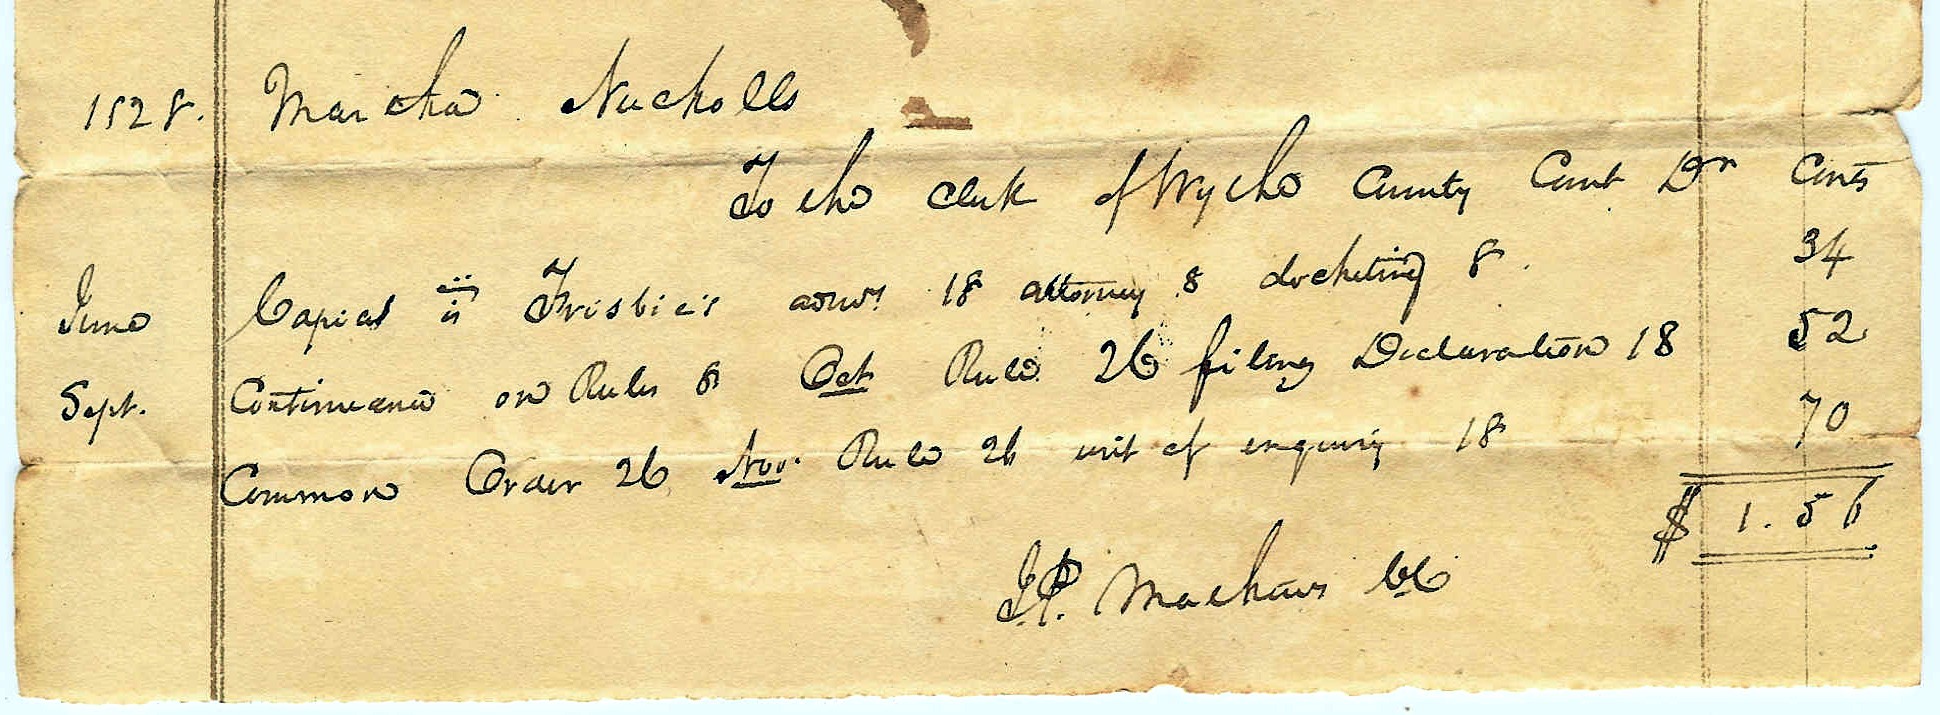 1828. Martha Nucholls
To the Clerk of Wythe County Court Dr Cents
June Capias vs Frisbie's admr 18 attorney 8 docketing 8. 34
Sept. Continuance on Rules 8 Oct Rule 26 filing Declaration 18 52
Common Order 26 Nov. Rule 26 writ of enquiry 18 70
$ 1.56
J.P. Mathews CC